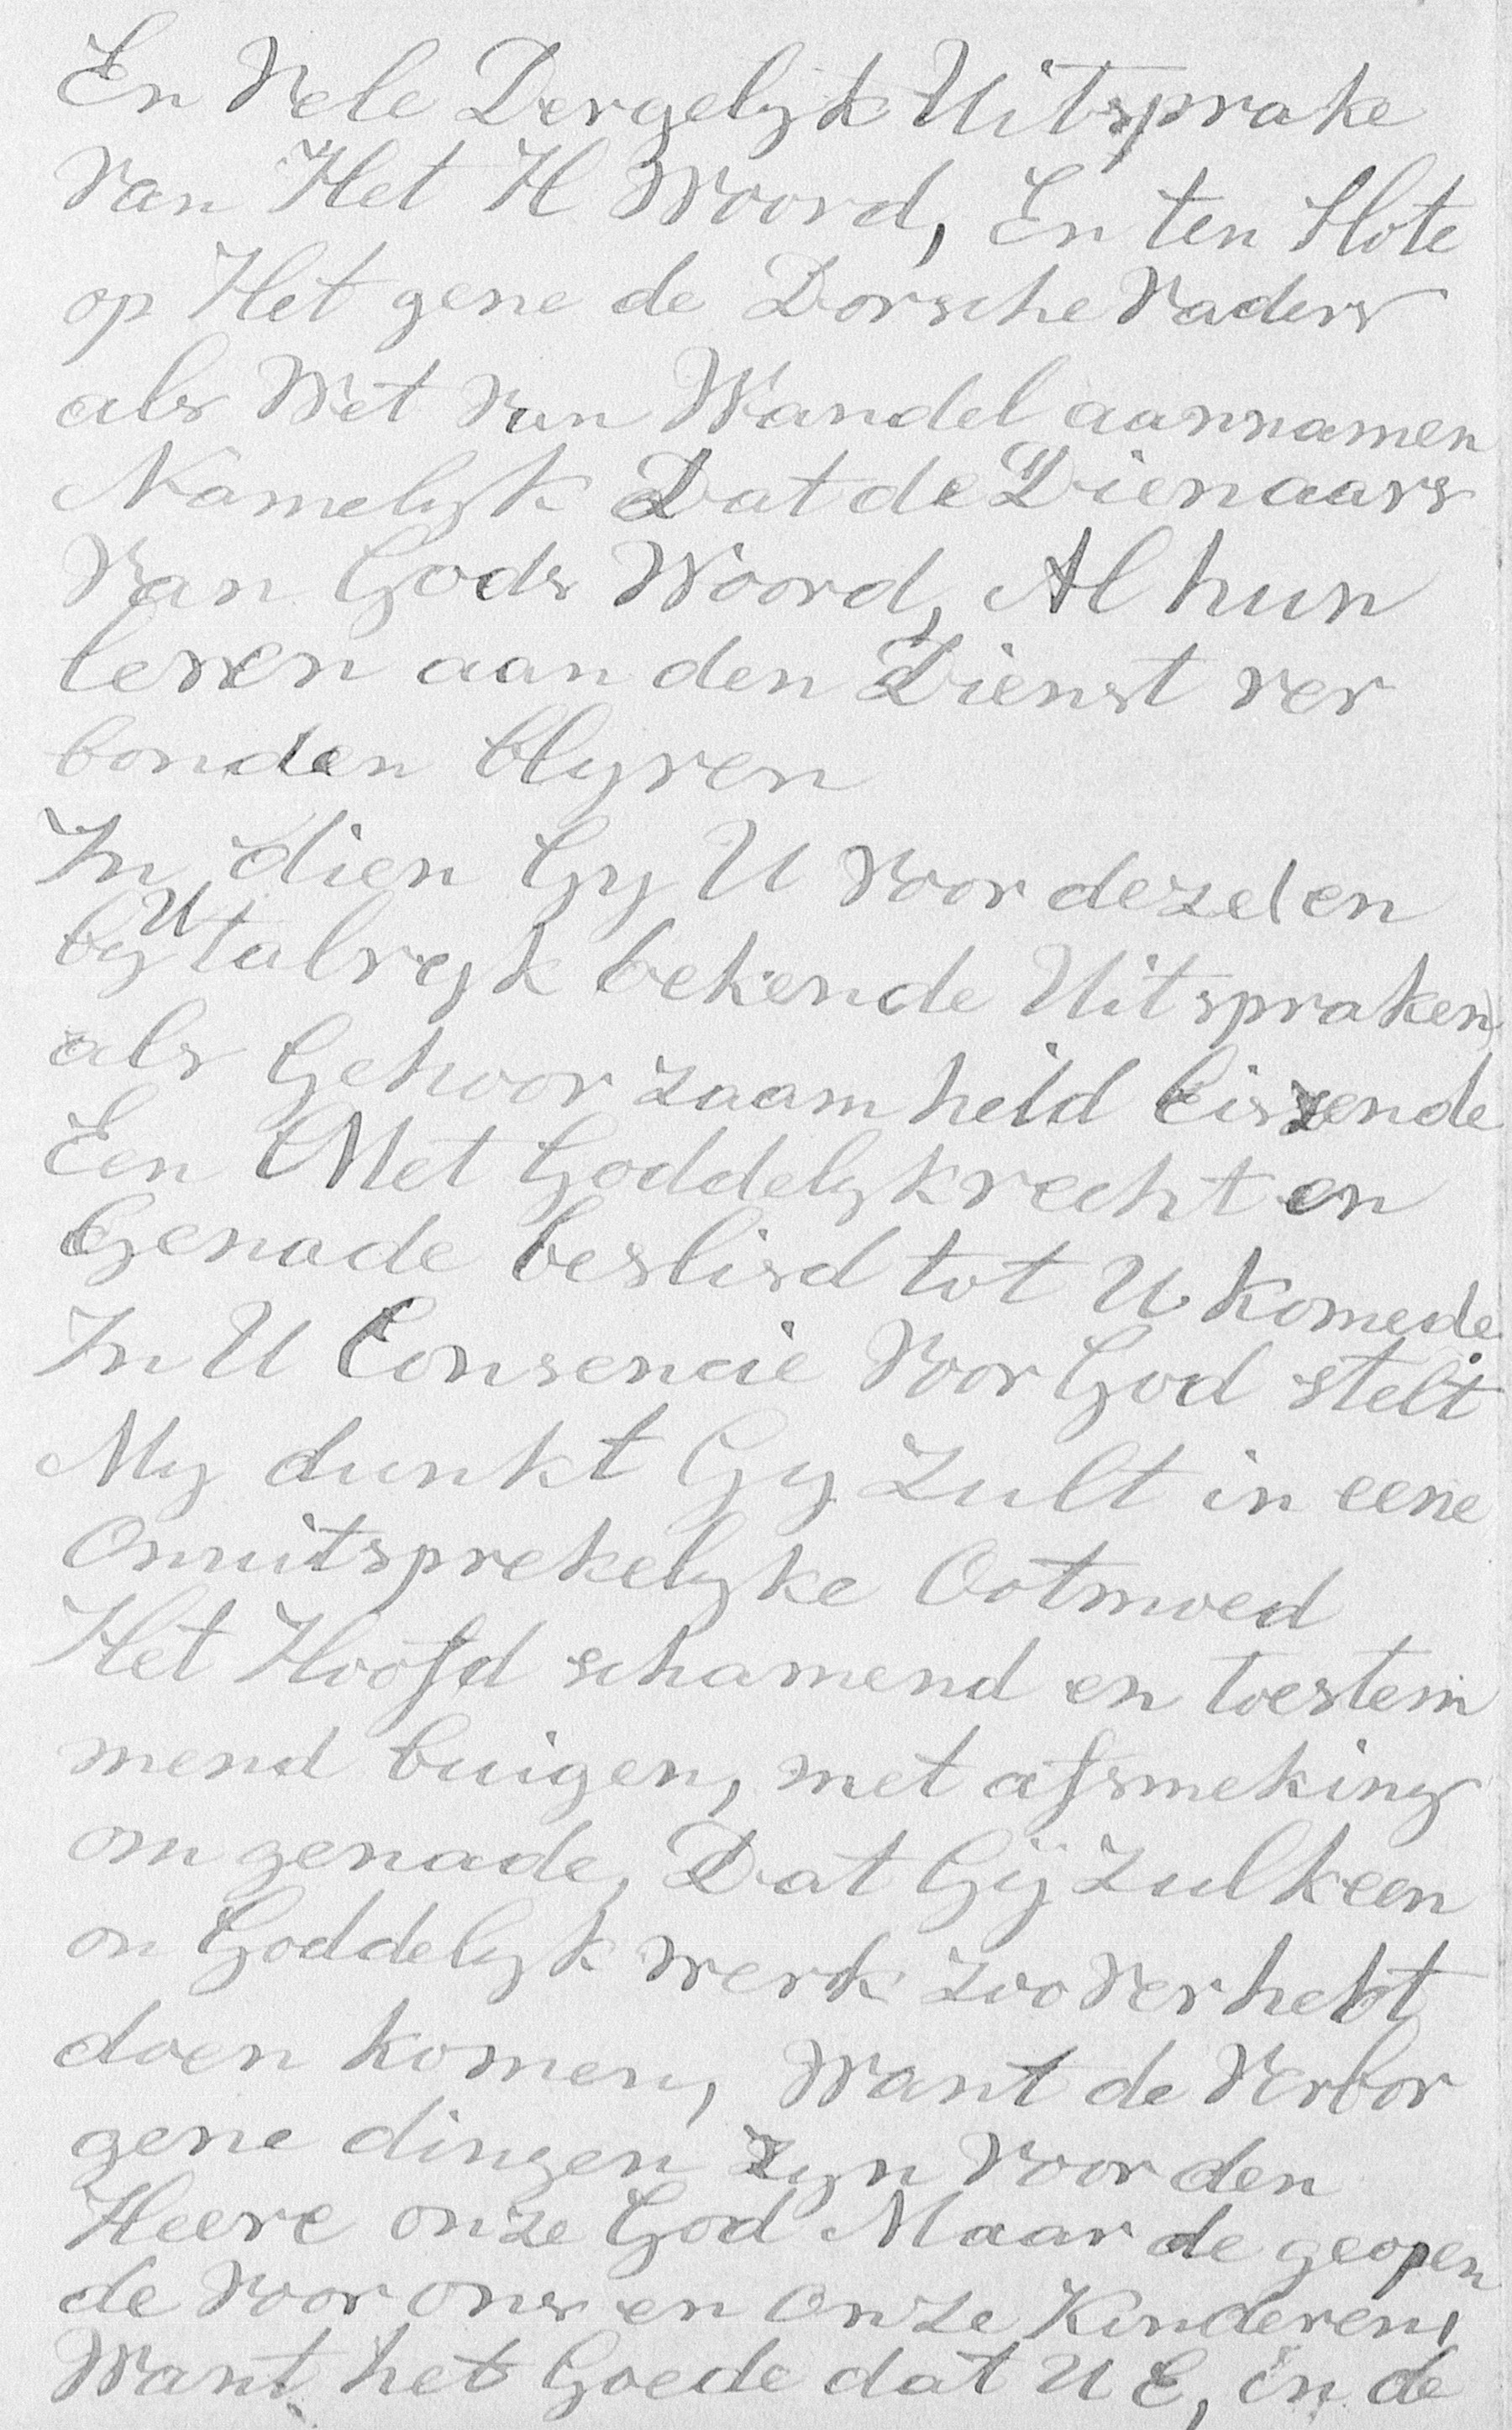 En Vele Dergelyk Uitsprake
Van Het H Woord, En ten Slote
op Het gene de Dorsche Vaders
als Wet Van Wandel aannamen
Namelyk Dat de Dienaars
Van Gods Woord, Al hun
leven aan den Dienst ver
bonden blyven
In dien Gy U Voor dezelen
by U talryk bekende Uitspraken
als Gehoor zaam heid Eiszende
Een Met Goddelyk recht en
Genade beslisd tot U Komede
In U Consencie Voor God stelt
My dunkt Gy Zult in eene
Onuitsprekelyke Ootmoed
Het Hoofd schamend en toestem
mend buigen, met afsmeking
om genade, Dat Gij Zulk een
on Goddelyk werk zoo Ver hebt
doen komen, Want de Verbor
gene dingen zyn Voor den
Heere onze God Maar de geopen
de Voor ons en Onze Kinderen,
Want het Goede dat U E, in de